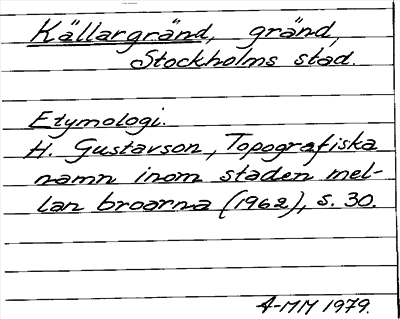 Källargränd, gränd,
Stockholms stad.
Etymologi.
H. Gustavson, Topografiska
namn inom staden mel-
lan broarna (1962), s. 30.
A-MM 1979.